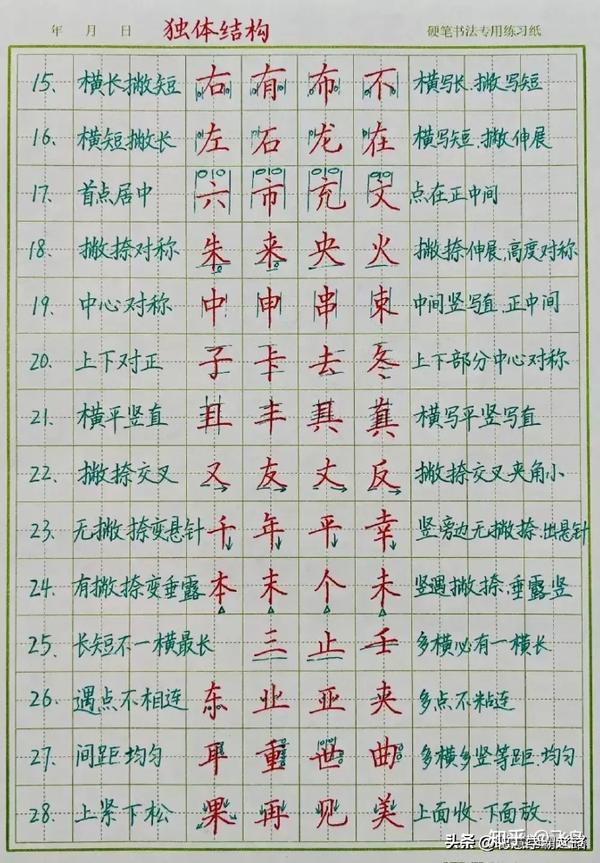 年 月 日 独体结构 硬笔书法专用练习纸
15、横长撇短 右 有 布 不 横写长、撇写短
16、横短撇长 左 石 龙 在 横写短、撇伸展
17、首点居中 六 市 充 文 点在正中间
18、撇捺对称 朱 来 央 火 撇捺伸展、高度对称
19、中心对称 中 申 串 束 中间竖写直、正中间
20、上下对正 子 卡 去 冬 上下部分中心对称
21、横平竖直 且 丰 具 真 横写平竖写直
22、撇捺交叉 又 友 丈 反 撇捺交叉夹角小
23、无撇捺变悬针 千 年 平 幸 竖旁边无撇捺、出悬针
24、有撇捺变垂露 本 末 个 未 竖遇撇捺、垂露竖
25、长短不一横最长 三 止 壬 多横必有一横长
26、遇点不相连 东 业 亚 夹 多点不粘连
27、间距均匀 耳 重 世 曲 多横多竖等距、均匀
28、上紧下松 果 再 见 美 上面收、下面放、
知乎 @飞鸟